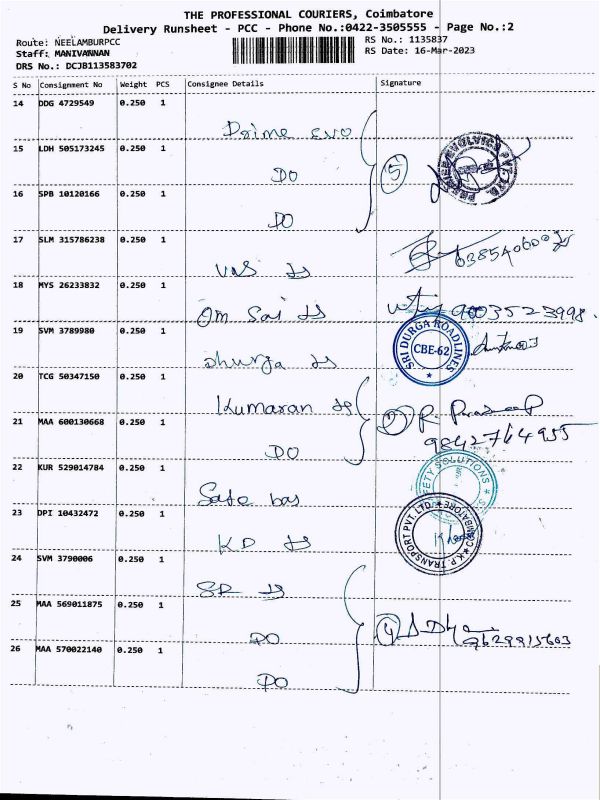 THE PROFESSIONAL COURIERS, Coimbatore
Delivery Runsheet - PCC - Phone No.:0422-3505555 - Page No.:2
Route: NEELAMBURPCC RS No.: 1135837
Staff: MANIVANNAN RS Date: 16-Mar-2023
DRS No.: DCJB113583702
S No Consignment No Weight PCS Consignee Details Signature
14 DDG 4729549 0.250 1
Prime evo
15 LDH 505173245 0.250 1
DO 5
16 SPB 10120166 0.250 1
DO
17 SLM 315786238 0.250 1
VRS
18 MYS 26233832 0.250 1
Om Sai 9003523998.
19 SVM 3789980 0.250 1
SRI DURGA ROADLINES
CBE-62
dhurga
20 TCG 50347150 0.250 1
Kumaran
21 MAA 600130668 0.250 1
9842764955
DO
22 KUR 529014784 0.250 1
SAFETY SOLUTIONS
Safe
23 DPI 10432472 0.250 1
K.P. TRANSPORT PVT. LTD. COIMBATORE
KD
24 SVM 3790006 0.250 1
SR
25 MAA 569011875 0.250 1
DO
26 MAA 570022140 0.250 1
DO